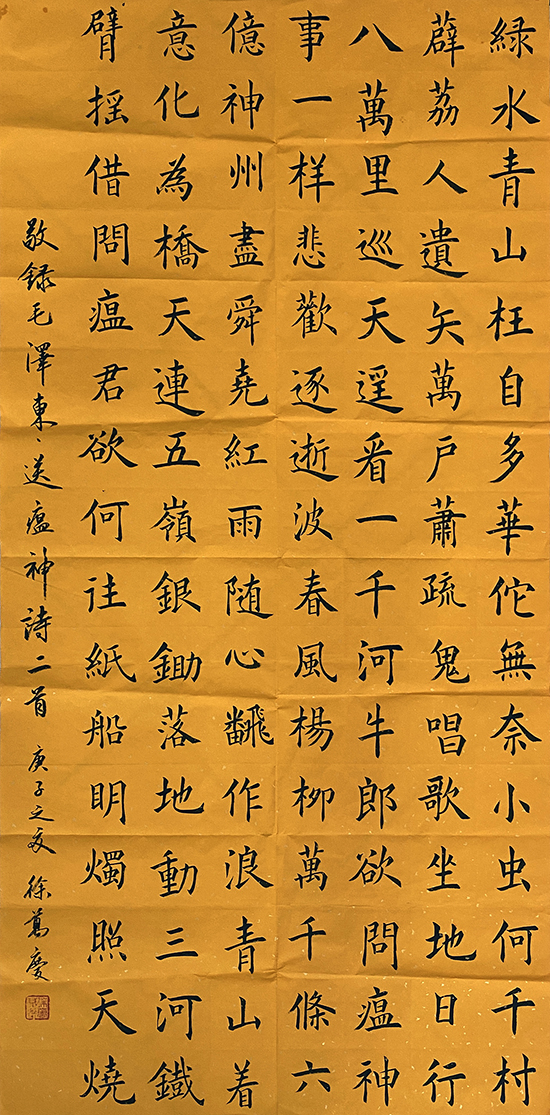 緑水青山枉自多華佗無奈小虫何千村
薜荔人遺矢萬戶蕭疏鬼唱歌坐地日行
八萬里巡天遥看一千河牛郎欲問瘟神
事一样悲歡逐逝波春風楊柳萬千條六
億神州盡舜堯紅雨随心飜作浪青山着
意化為橋天連五嶺銀鋤落地動三河鐵
臂摇借問瘟君欲何往紙船明燭照天燒
敬録毛澤東、送瘟神詩二首 庚子之夏 徐萬慶